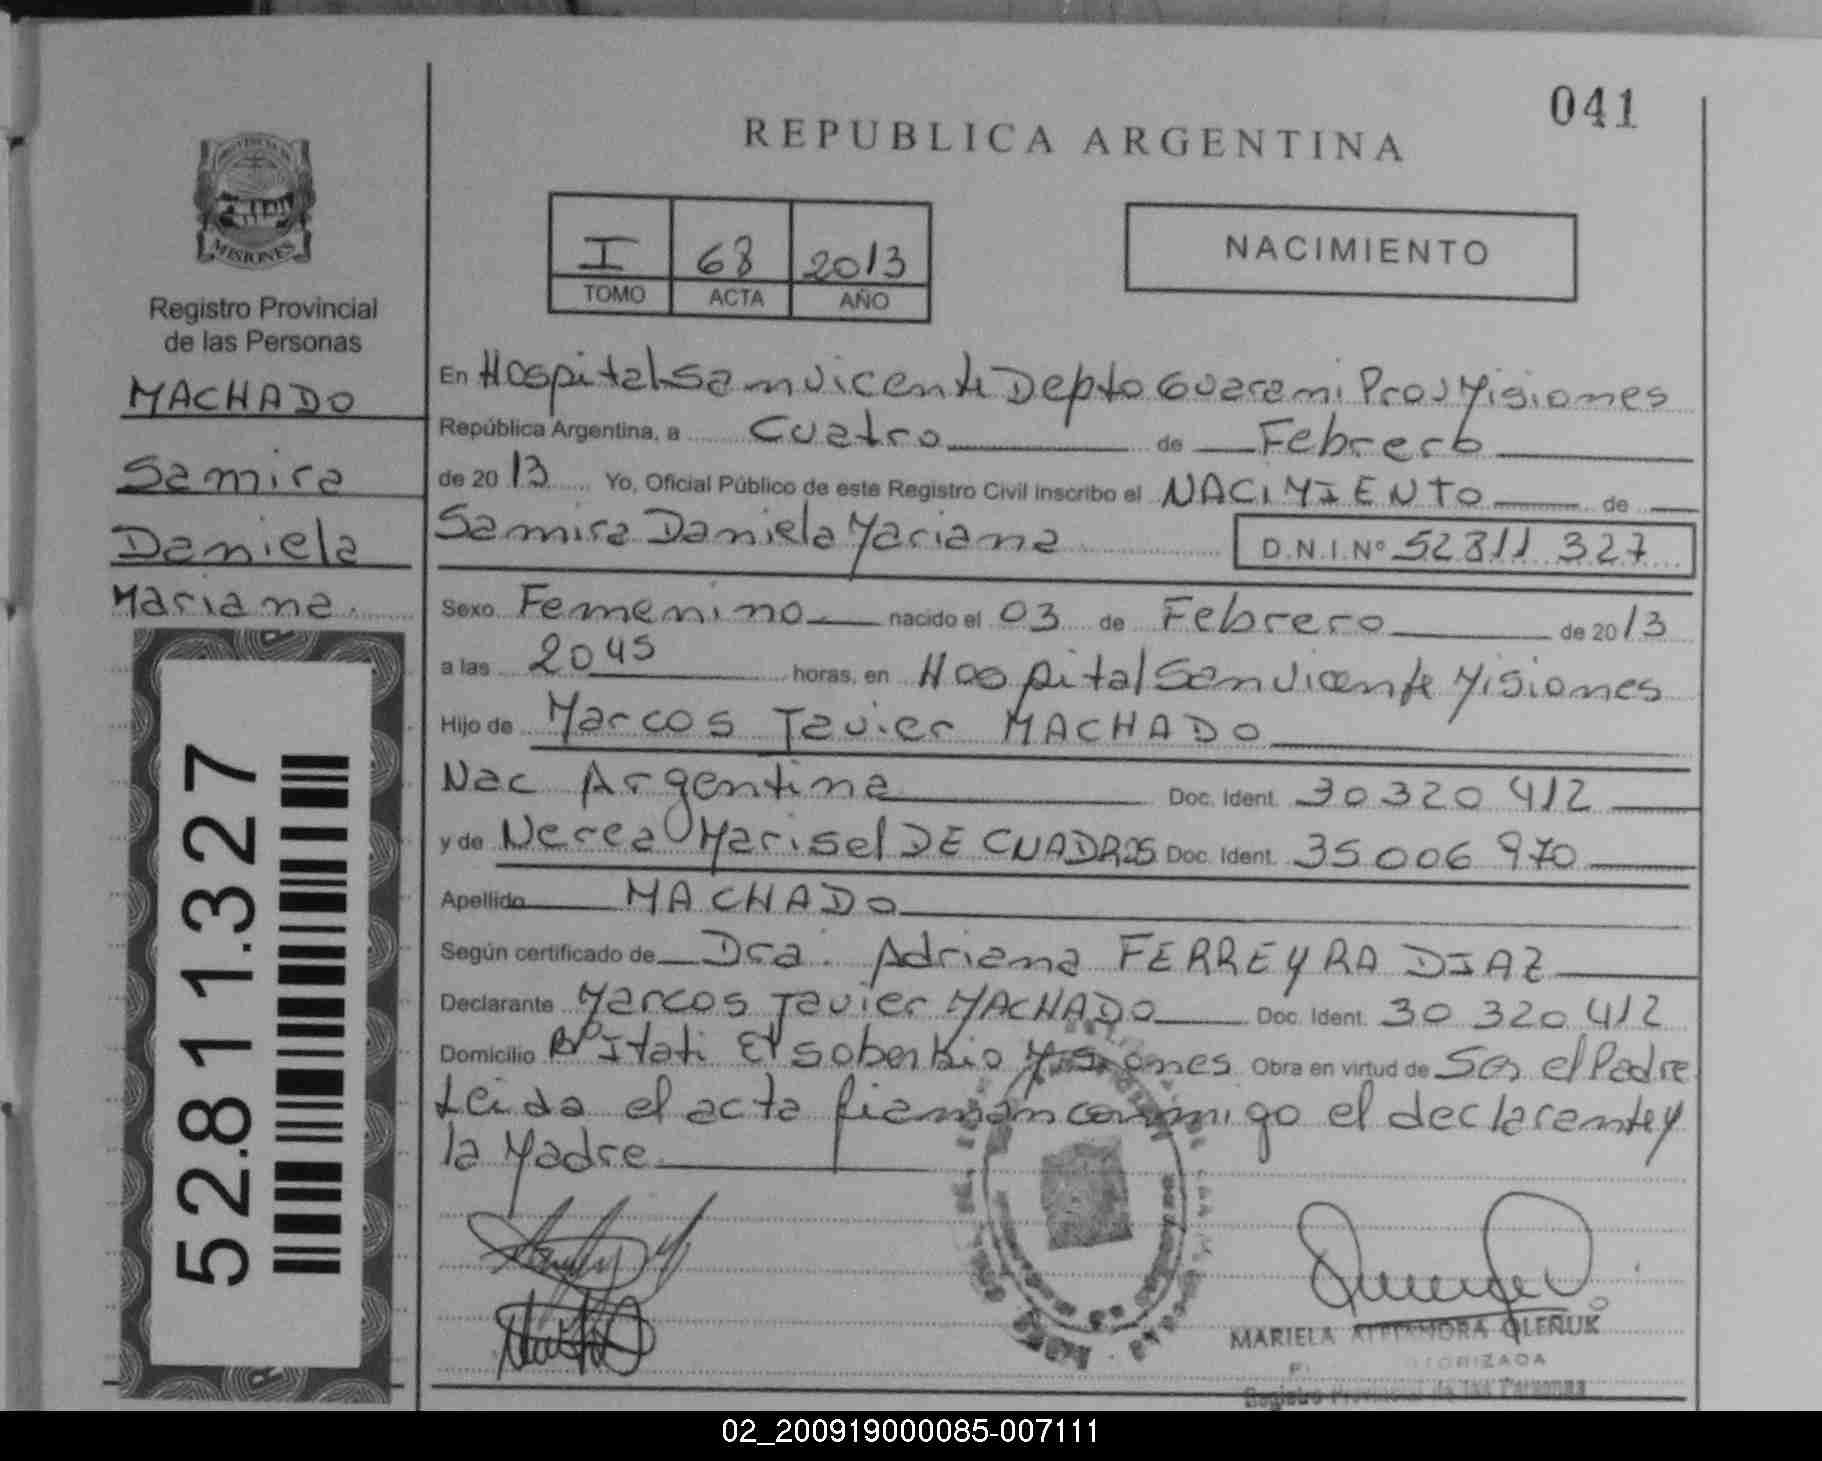 041
REPUBLICA ARGENTINA
PROVINCIA DE
MISIONES
Registro Provincial
de las Personas
MACHADO
Samira
Daniela
Mariana
52.811.327
I 68 2013
TOMO ACTA AÑO
NACIMIENTO
En Hospital San Vicente Depto Guarani Prov Misiones
República Argentina, a Cuatro de Febrero
de 2013 Yo, Oficial Público de este Registro Civil inscribo el NACIMIENTO de
Samira Daniela Mariana D.N.I. Nº 52811327
Sexo Femenino nacido el 03 de Febrero de 2013
a las 2045 horas, en Hospital San Vicente Misiones
Hijo de Marcos Javier MACHADO
Nac Argentina Doc. Ident. 30320412
y de Nerea Marisel DE CUADROS Doc. Ident. 35006970
Apellido MACHADO
Según certificado de Dra. Adriana FERREYRA DIAZ
Declarante Marcos Javier MACHADO Doc. Ident. 30320412
Domicilio Bº Itati El soberbio Misiones Obra en virtud de Ser el Padre
Leida el acta firman conmigo el declarante y
la Madre
MARIELA ALEJANDRA OLEÑUK
Registro Provincial de las Personas
02_200919000085-007111